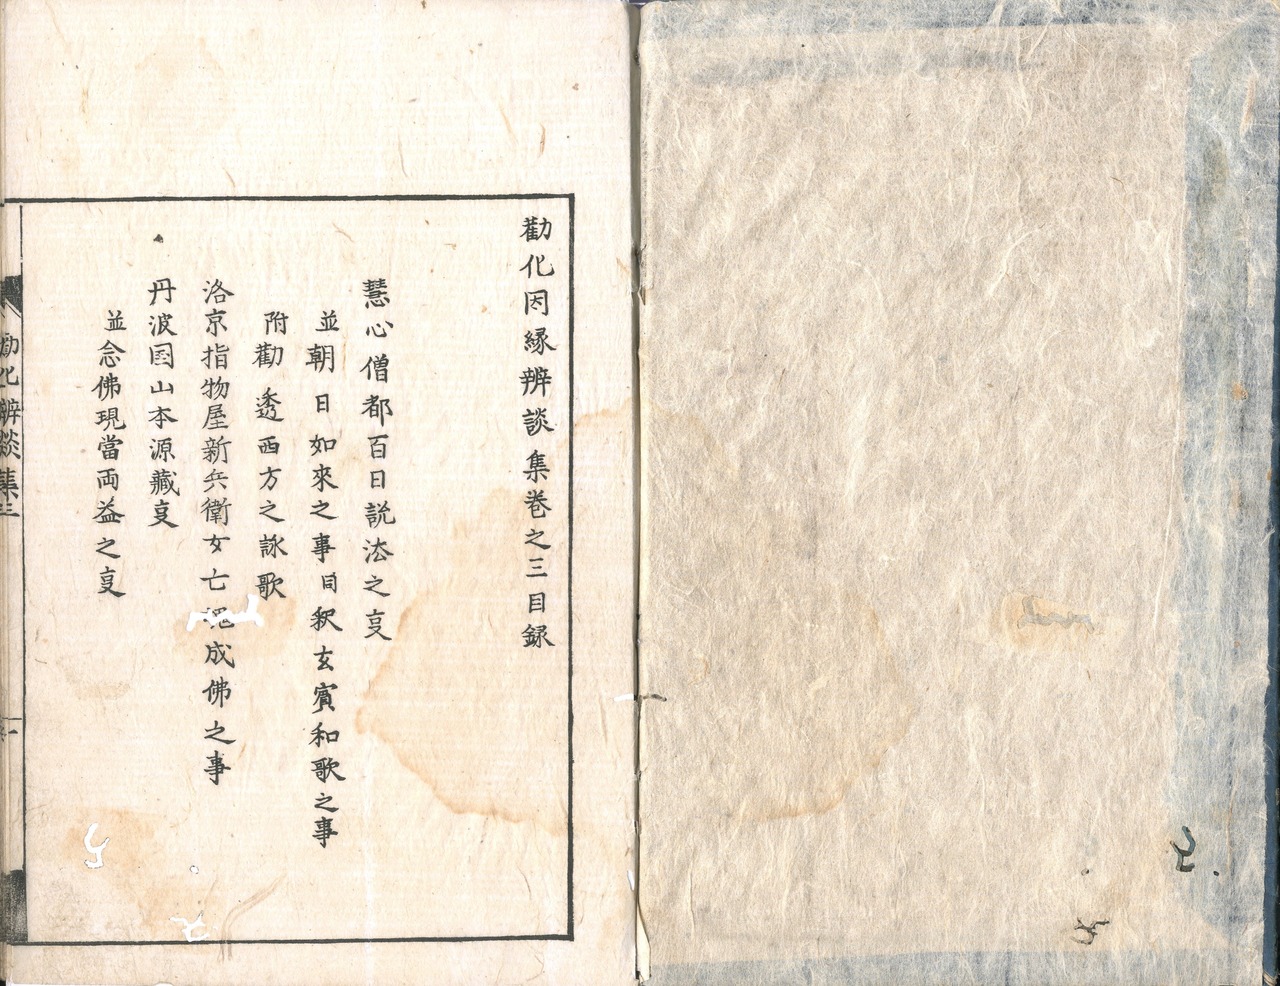 勸化因縁辨談集巻之三目録
慧心僧都百日説法之㕝
並朝日如來之事同釈玄賓和歌之事
附勸透西方之詠歌
洛京指物屋新兵衛女亡魂成佛之事
丹波国山本源藏㕝
並念佛現當両益之㕝
勸化辨談集三